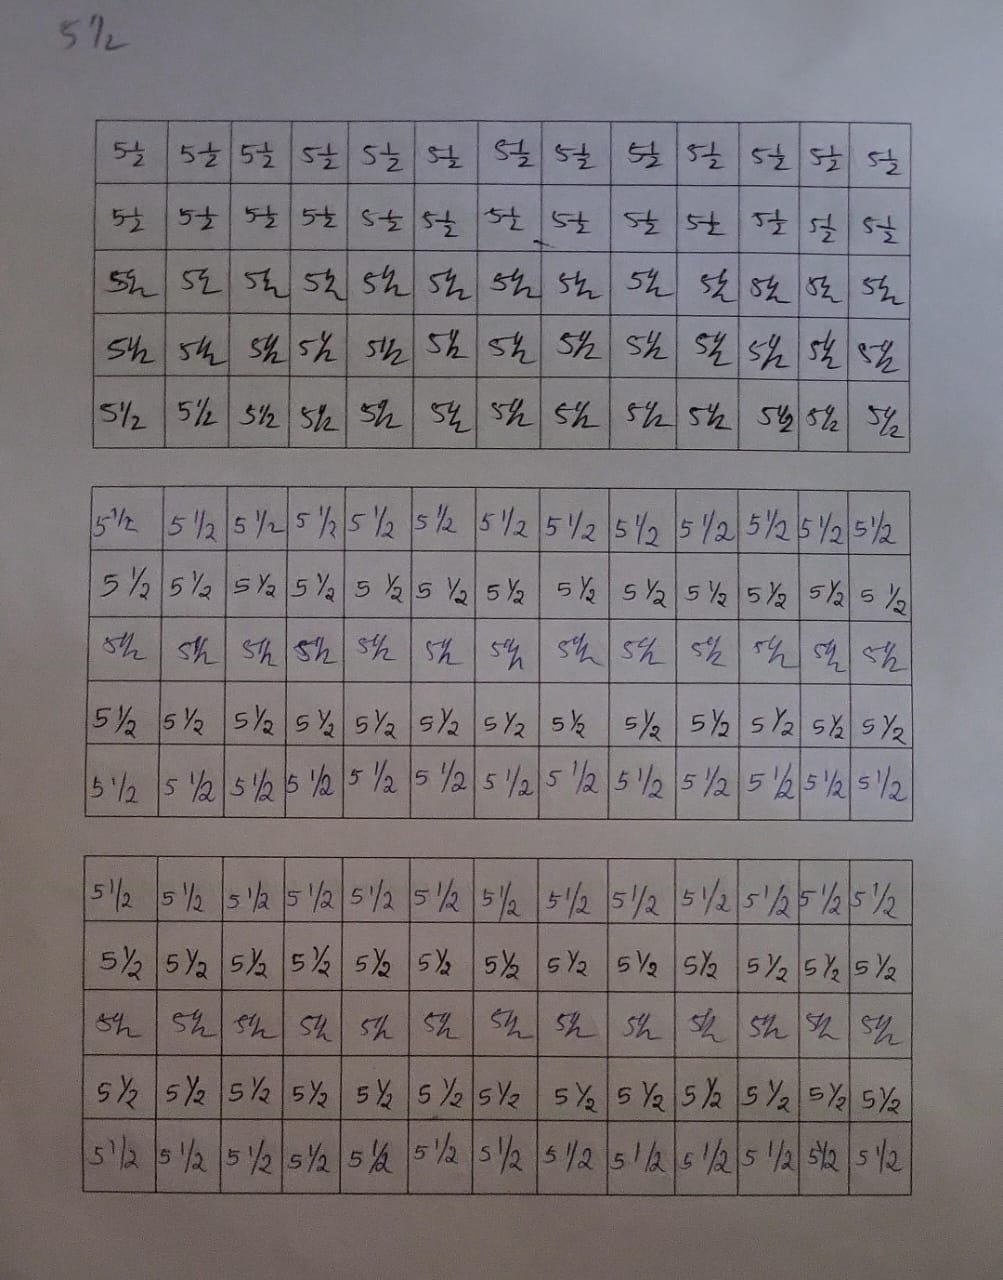 5 1/2
5½ 5½ 5½ 5½ 5½ 5½ 5½ 5½ 5½ 5½ 5½ 5½ 5½
5½ 5½ 5½ 5½ 5½ 5½ 5½ 5½ 5½ 5½ 5½ 5½ 5½
5½ 5½ 5½ 5½ 5½ 5½ 5½ 5½ 5½ 5½ 5½ 5½ 5½
5½ 5½ 5½ 5½ 5½ 5½ 5½ 5½ 5½ 5½ 5½ 5½ 5½
5½ 5½ 5½ 5½ 5½ 5½ 5½ 5½ 5½ 5½ 5½ 5½ 5½
5 1/2 5 1/2 5 1/2 5 1/2 5 1/2 5 1/2 5 1/2 5 1/2 5 1/2 5 1/2 5 1/2 5 1/2 5 1/2
5 1/2 5 1/2 5 1/2 5 1/2 5 1/2 5 1/2 5 1/2 5 1/2 5 1/2 5 1/2 5 1/2 5 1/2 5 1/2
5½ 5½ 5½ 5½ 5½ 5½ 5½ 5½ 5½ 5½ 5½ 5½ 5½
5 1/2 5 1/2 5 1/2 5 1/2 5 1/2 5 1/2 5 1/2 5 1/2 5 1/2 5 1/2 5 1/2 5 1/2 5 1/2
5 1/2 5 1/2 5 1/2 5 1/2 5 1/2 5 1/2 5 1/2 5 1/2 5 1/2 5 1/2 5 1/2 5 1/2 5 1/2
5 1/2 5 1/2 5 1/2 5 1/2 5 1/2 5 1/2 5 1/2 5 1/2 5 1/2 5 1/2 5 1/2 5 1/2 5 1/2
5 1/2 5 1/2 5 1/2 5 1/2 5 1/2 5 1/2 5 1/2 5 1/2 5 1/2 5 1/2 5 1/2 5 1/2 5 1/2
5½ 5½ 5½ 5½ 5½ 5½ 5½ 5½ 5½ 5½ 5½ 5½ 5½
5 1/2 5 1/2 5 1/2 5 1/2 5 1/2 5 1/2 5 1/2 5 1/2 5 1/2 5 1/2 5 1/2 5 1/2 5 1/2
5 1/2 5 1/2 5 1/2 5 1/2 5 1/2 5 1/2 5 1/2 5 1/2 5 1/2 5 1/2 5 1/2 5 1/2 5 1/2